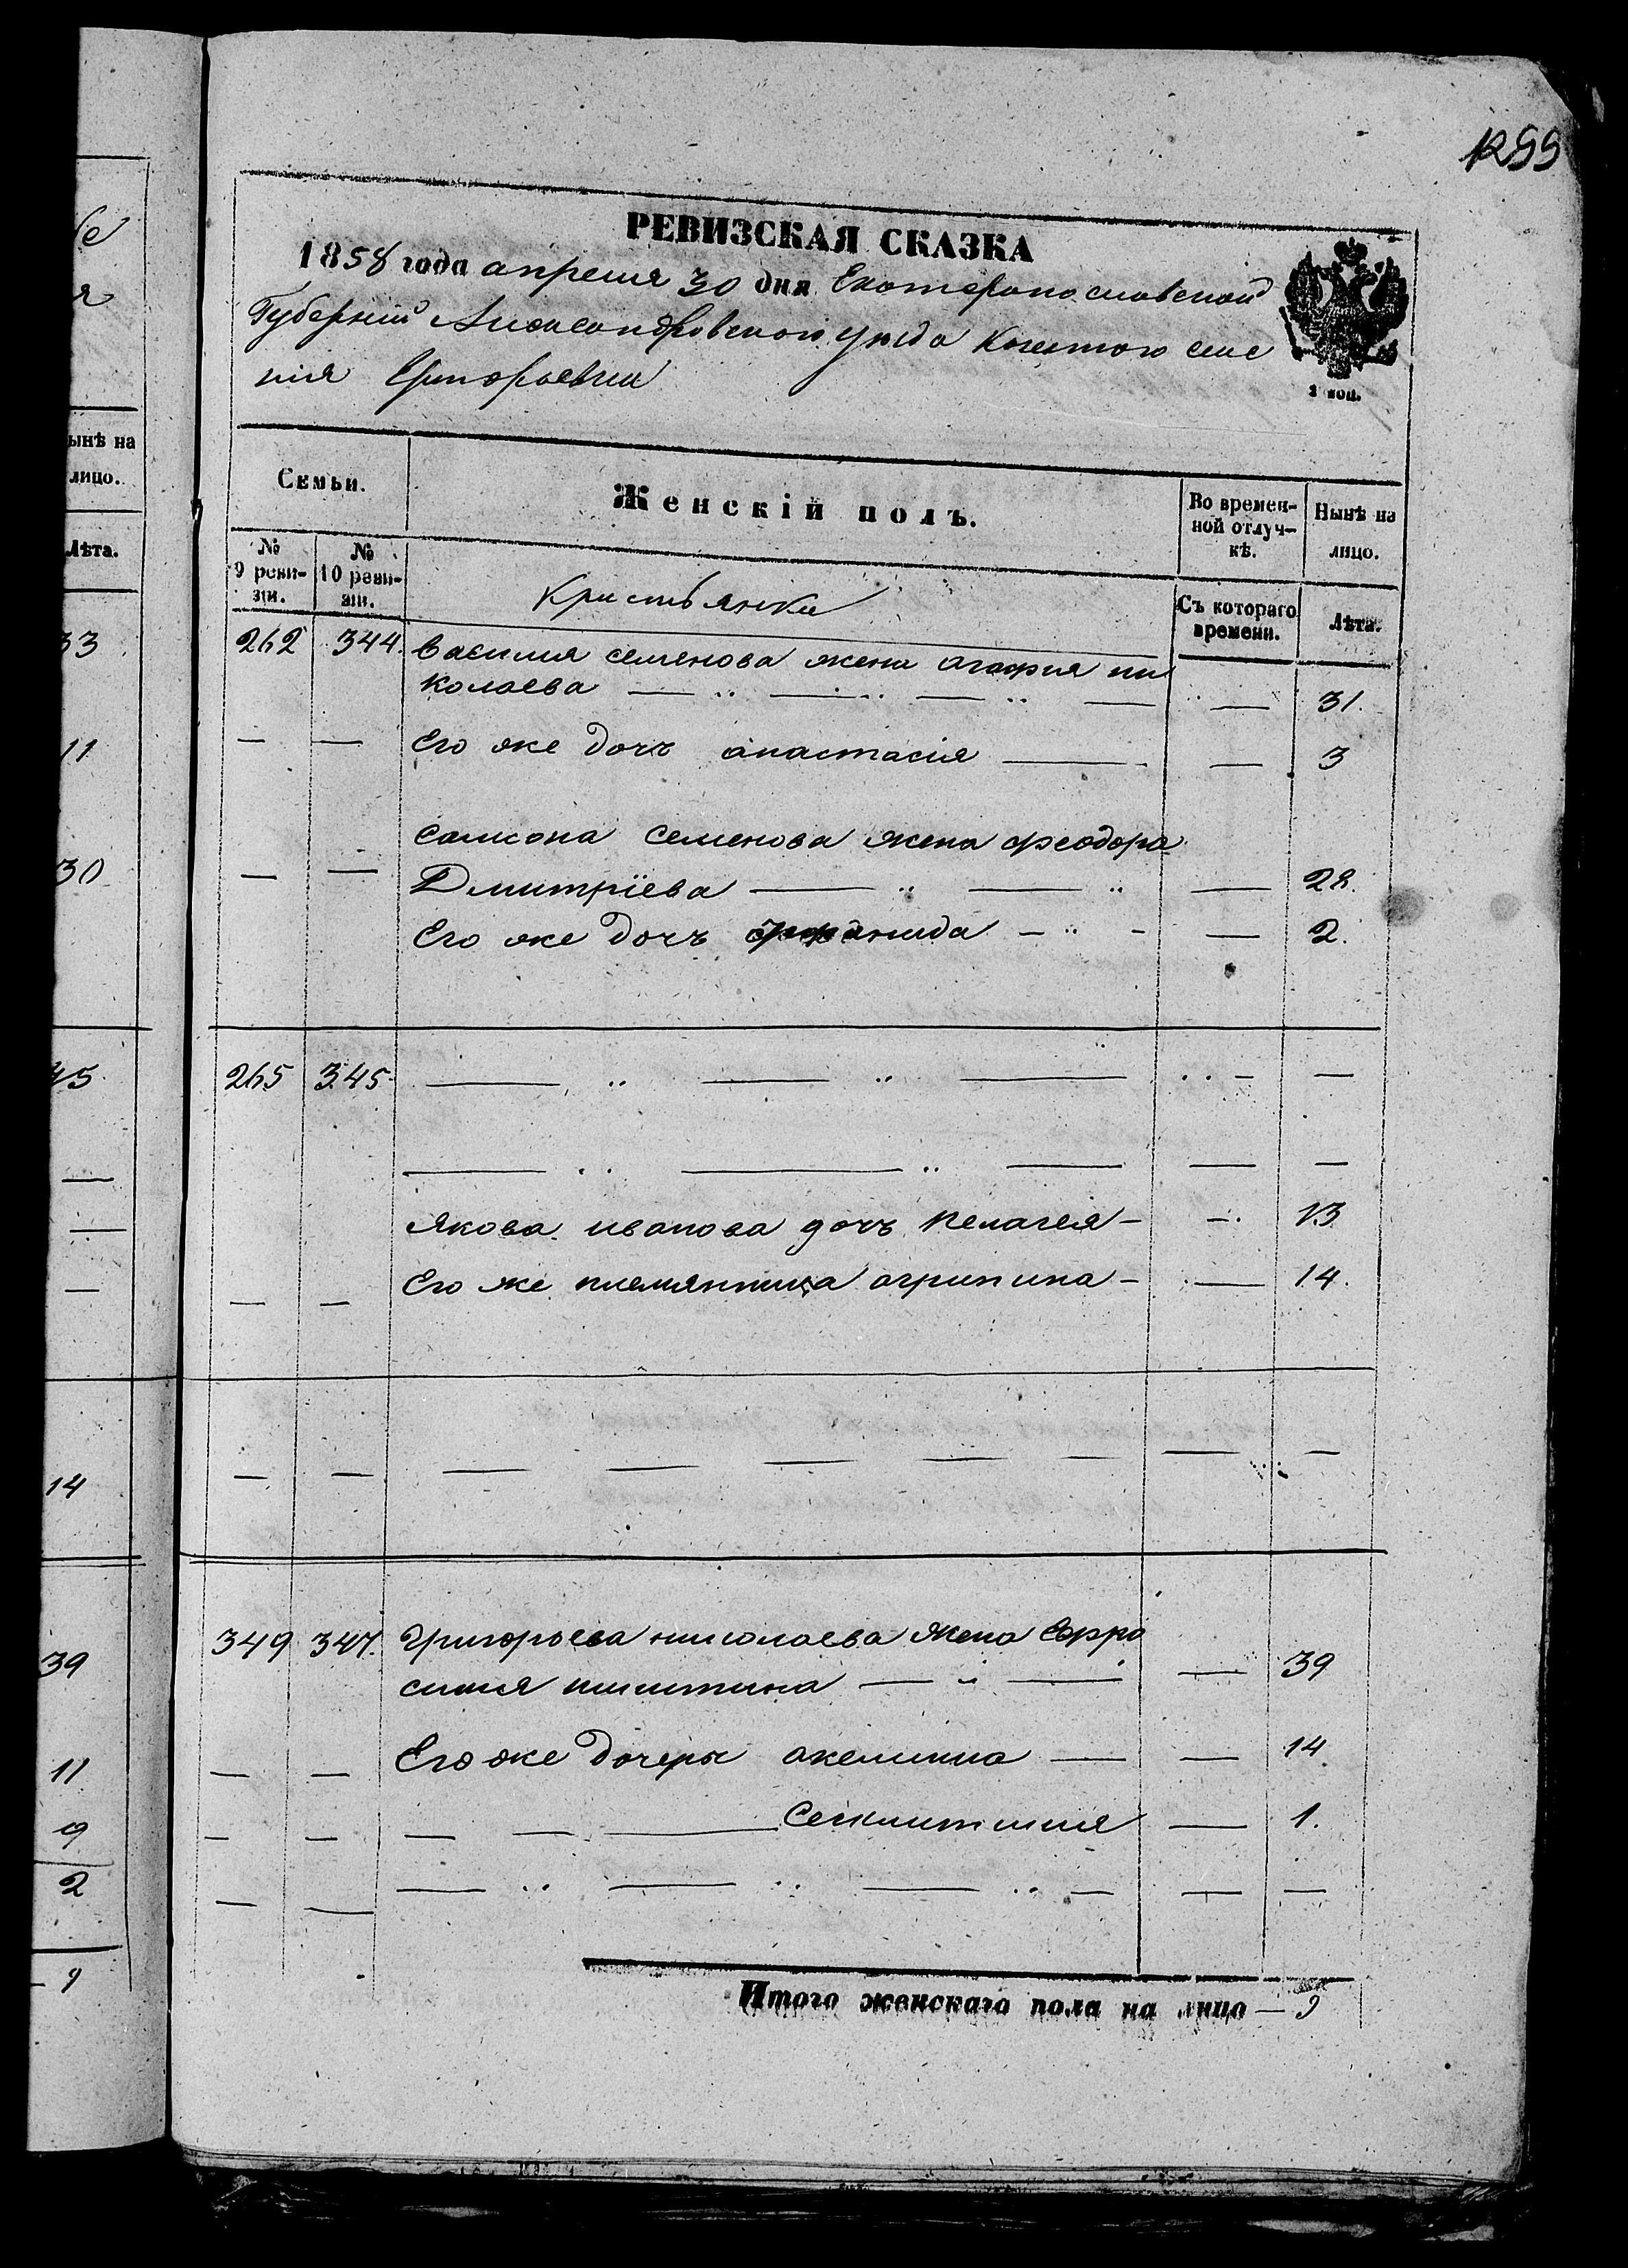 1299
РЕВИЗСКАЯ СКАЗКА
1858 года апреля 30 дня Екатеринославской
Губерніи Александровского уезда Козенного селе
нія Григорьевки
1 коп.
Семьи.
Женскій полъ.
Во времен-
ной отлуч-
кѣ.
Нынѣ на
лицо.
№
9 реви-
зіи.
№
10 реви-
зіи.
Кристьянки
Съ котораго
времени.
Лѣта.
262 344. Василия семенова жена агафия ни
колаева — 31.
— — Его же дочь анастасия — — 3
самсона семенова жена феодора
— — Дмитріева — — 28.
Его же дочь — — 2.
265 345. — — —
— — —
Якова иванова дочь пелагея — — 13
— — Его же племянница агрипина — — 14.
— — — — — — — — —
349 347. Григорьева николаева жена Евфро
синия никитина — — 39
— — Его же дочеры акелина — — 14
— — — — — — 1.
— — — — — — — —
Итого женскаго пола на лицо — 9
ынѣ на
лицо.
Лѣта.
33
11
30
45
—
—
—
14
39
11
9
2
— 9